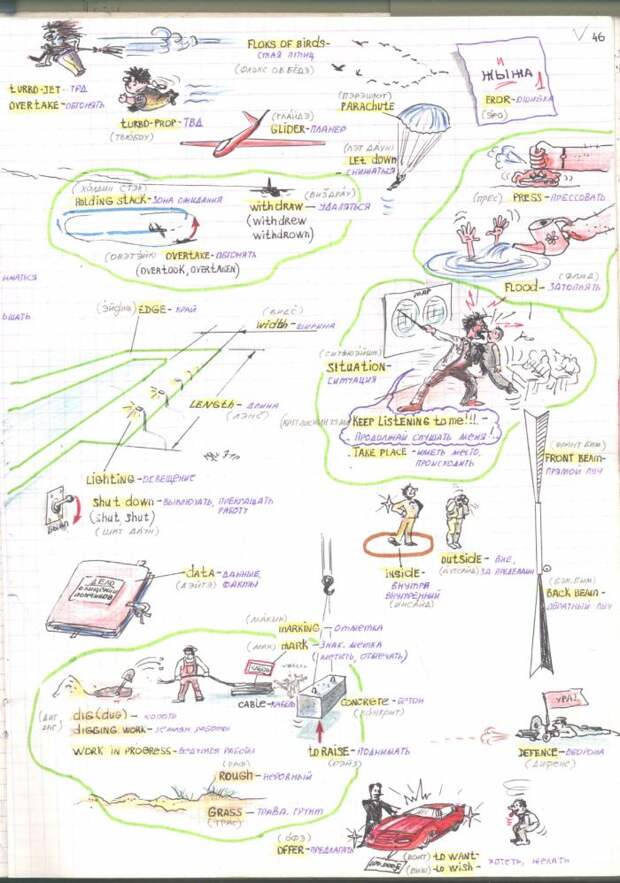 46
TURBO-JET - ТРД
OVERTAKE - ОБГОНЯТЬ
TURBO-PROP - ТВД
FLOKS OF BIRDS -
СТАЯ ПТИЦ
(ФЛОКС ОВ БЁДЗ)
(ГЛАЙДЭ)
GLIDER - ПЛАНЕР
(ПЭРЭШЮТ)
PARACHUTE
(ЛЭТ ДАУН)
LET DOWN
СНИЖАТЬСЯ
И
ЖЫЖА
1
EROR - ОШИБКА
(ЭРО)
(ХОЛДИН СТЭК)
HOLDING STACK - ЗОНА ОЖИДАНИЯ
(ВИЗДРАУ)
withdraw - УДАЛЯТЬСЯ
(withdrew
withdrown)
(ОВЭТЭЙК) OVERTAKE - ОБГОНЯТЬ
(OVERTOOK, OVERTAKEN)
(ПРЕС) PRESS - ПРЕССОВАТЬ
(ФЛАД)
FLOOD - ЗАТОПЛЯТЬ
(ЭЙДЖ) EDGE - КРАЙ
width - ШИРИНА
LENGTH - ДЛИНА
(ЛЭНС)
LIGHTING - ОСВЕЩЕНИЕ
shut down - ВЫКЛЮЧАТЬ, ПРЕКРАЩАТЬ
РАБОТУ
(shut, shut)
(ШАТ ДАУН)
MAP
SITUATION -
СИТУАЦИЯ
KEEP LISTENING to me!!! -
ПРОДОЛЖАЙ СЛУШАТЬ МЕНЯ!
TAKE PLACE - ИМЕТЬ МЕСТО,
ПРОИСХОДИТЬ
(ФРОНТ БИМ)
FRONT BEAM -
ПРЯМОЙ ЛУЧ
INSIDE -
ВНУТРИ
ВНУТРЕННИЙ
(ИНСАЙД)
OUTSIDE - ВНЕ,
ЗА ПРЕДЕЛАМИ
(БЭК БИМ)
BACK BEAM -
ОБРАТНЫЙ ЛУЧ
ДЕЛО
DATA - ДАННЫЕ,
ФАКТЫ
(ДЭЙТЭ)
(МАКИН)
MARKING - ОТМЕТКА
(МАК) MARK - ЗНАК. МЕТКА
(МЕТИТЬ, ОТМЕЧАТЬ)
CABLE - КАБЕЛЬ
CONCRETE - БЕТОН
(КОНКРИТ)
DIG (DUG) - КОПАТЬ
DIGGING WORK - ЗЕМЛЯН. РАБОТЫ
WORK IN PROGRESS - ВЕДУТСЯ РАБОТЫ
TO RAISE - ПОДНИМАТЬ
(РЭЙЗ)
(РАФ)
ROUGH - НЕРОВНЫЙ
GRASS - ТРАВА. ГРУНТ
(ГРАС)
УРА!
DEFENCE - ОБОРОНА
(ДИФЕНС)
(ОФЭ)
OFFER - ПРЕДЛАГАТЬ
(ВОНТ) TO WANT -
(ВИШ) TO WISH -
ХОТЕТЬ, ЖЕЛАТЬ